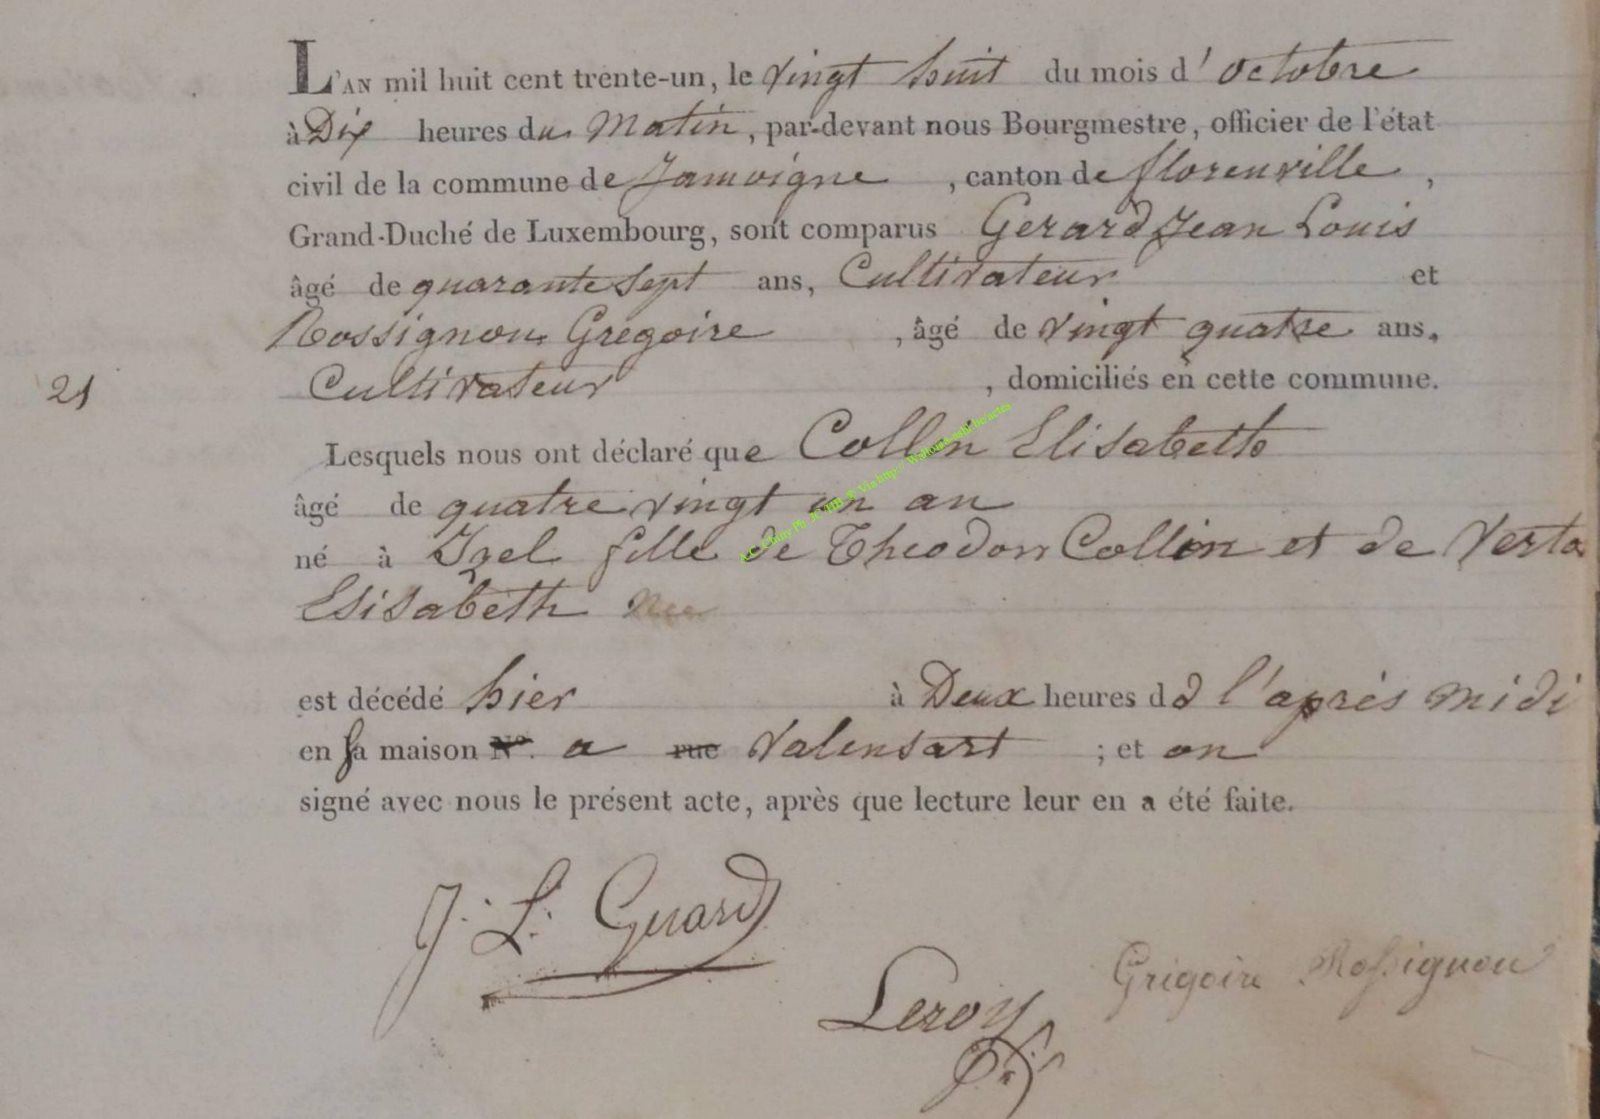 L'AN mil huit cent trente-un, le vingt huit du mois d'octobre
à Dix heures du Matin, par-devant nous Bourgmestre, officier de l'état
civil de la commune de Jamoigne, canton de florenville,
Grand-Duché de Luxembourg, sont comparus Gerard Jean Louis
âgé de quarante Sept ans, Cultivateur et
Rossignon Gregoire, âgé de vingt quatre ans,
21 Cultivateur, domiciliés en cette commune.
Lesquels nous ont déclaré que Collin Elisabeth
âgé de quatre vingt un an
né à Izel fille de Theodore Collin et de
Elisabeth
est décédé hier à Deux heures de l'après midi
en sa maison N°. a rue Valensart ; et on
signé avec nous le présent acte, après que lecture leur en a été faite.
J. L. Gerard
Grigoire Rossignon
Leroy